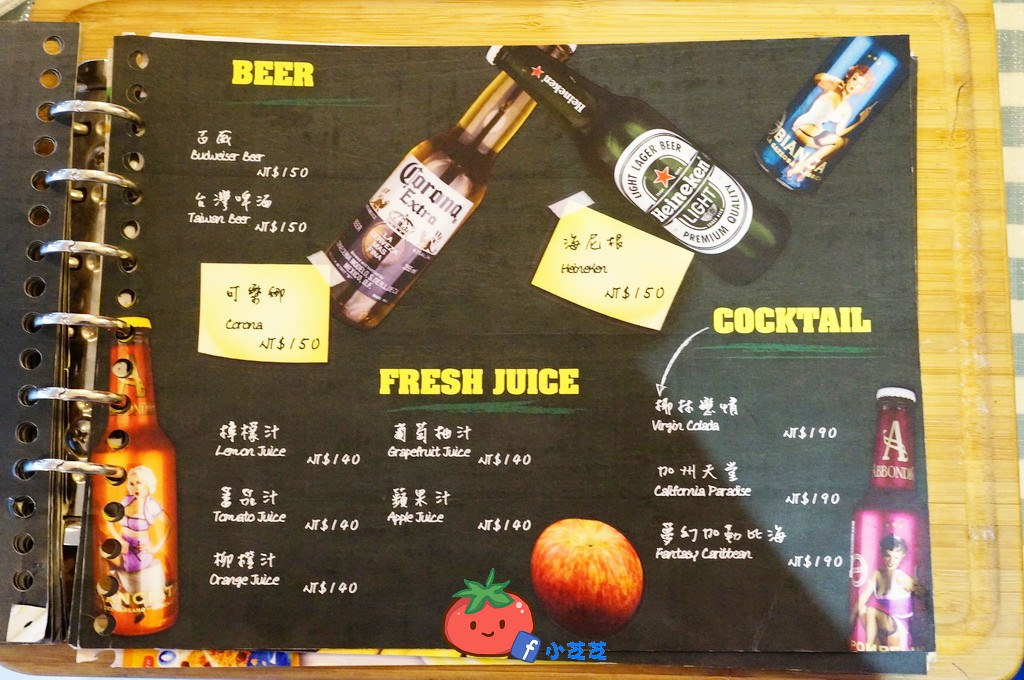 BEER
百威
Budweiser Beer
NT$150
台灣啤酒
Taiwan Beer
NT$150
可樂娜
Corona
NT$150
Corona
Extra
Heineken
LIGHT LAGER BEER
Heineken
LIGHT
PREMIUM QUALITY
BIANCA
海尼根
Heineken
NT$150
COCKTAIL
Virgin Colada
NT$190
加州天堂
California Paradise
NT$190
夢幻加勒比海
Fantasy Caribbean
NT$190
FRESH JUICE
檸檬汁
Lemon Juice
NT$140
蕃茄汁
Tomato Juice
NT$140
柳橙汁
Orange Juice
NT$140
葡萄柚汁
Grapefruit Juice
NT$140
蘋果汁
Apple Juice
NT$140
A
ABBONDI
f 小芝芝